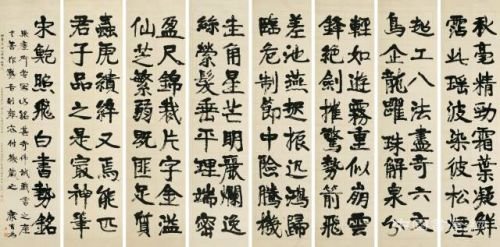 秋毫精勁霜葉凝鮮
霑此瑤波染彼松煙
超工八法盡奇六文
鳥企龍躍珠解泉分
輕如遊霧重似崩雲
鋒絕劍摧驚勢箭飛
差池燕起振迅鴻歸
臨危制節中險騰機
圭角星芒明麗爛逸
絲縈髮垂平理端密
盈尺錦裁片字金溢
仙芝繁弱既匪足質
蟲虎又焉能匹
君子品之是最神筆
宋鮑照飛白書勢銘